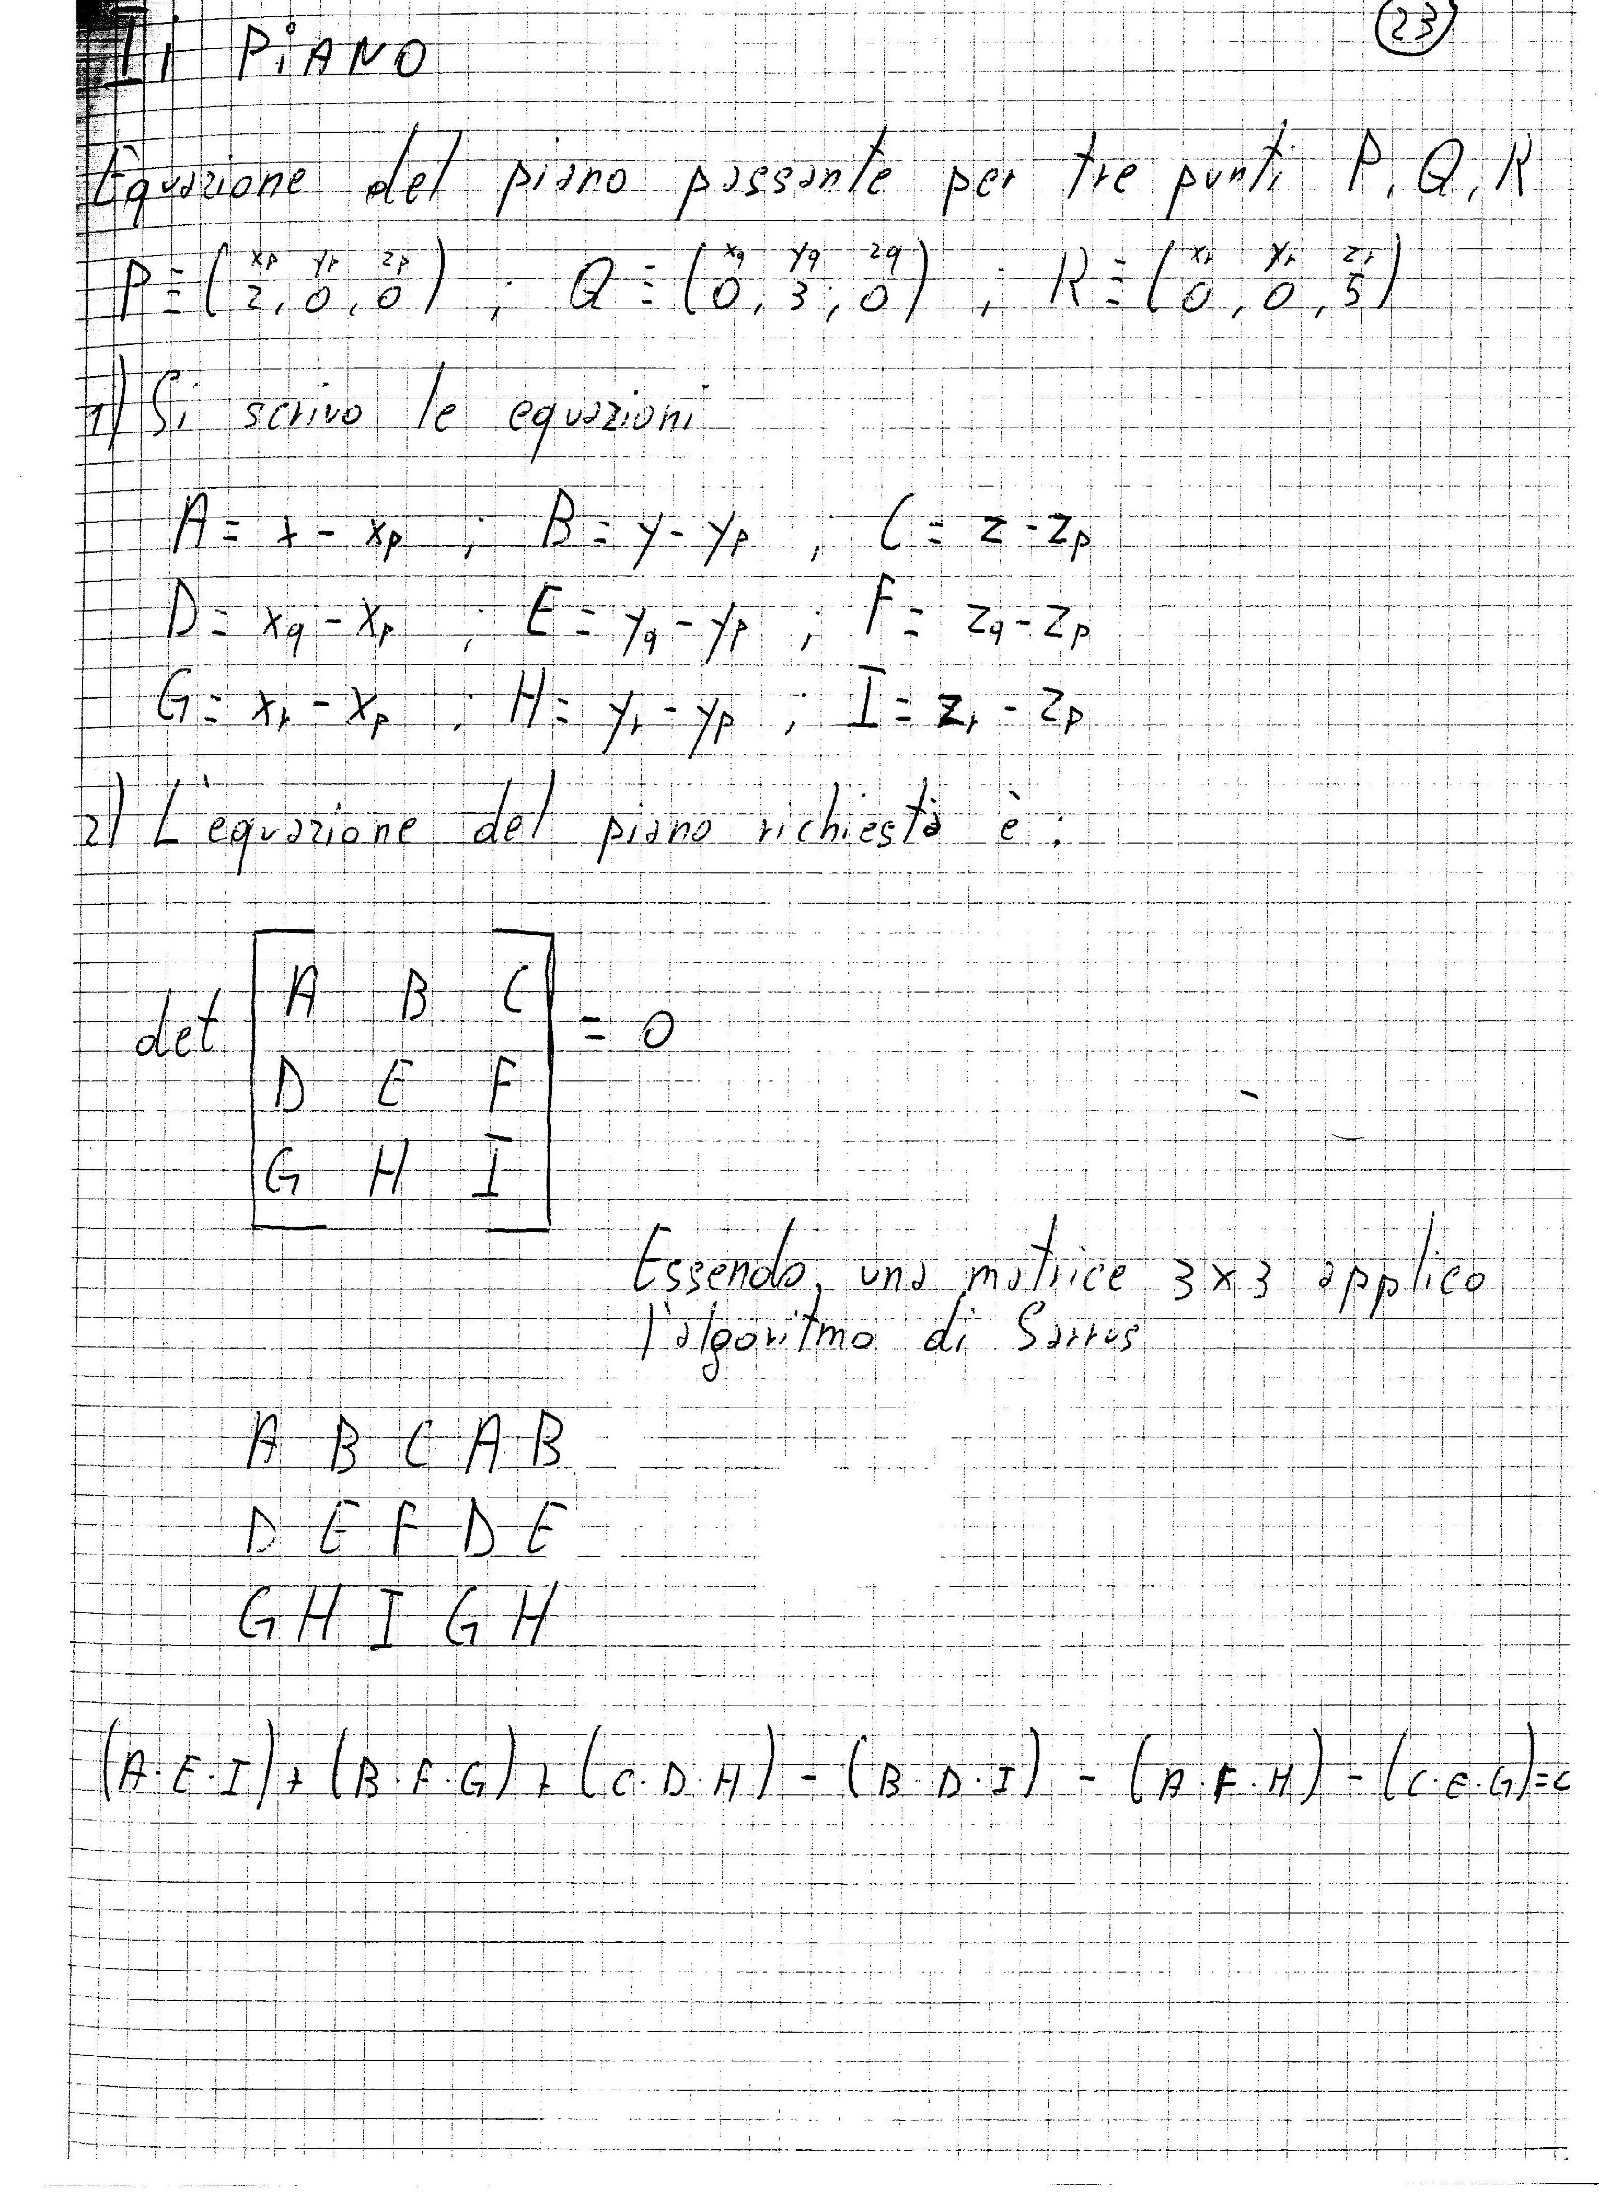 Il PiANO
23
Equazione del piano passante per tre punti P, Q, R
P≡(2, 0, 0) ; Q≡(0, 3, 0) ; R≡(0, 0, 5)
xp yp zp xq yq zq xr yr zr
1) Si scrivo le equazioni
A = x - xp ; B = y - yp ; C = z - zp
D = xq - xp ; E = yq - yp ; F = zq - zp
G = xr - xp ; H = yr - yp ; I = zr - zp
2) L'equazione del piano richiesta è :
det [ A B C
D E F
G H I ] = 0
Essendo, una matrice 3x3 applico
l'algoritmo di Sarrus
A B C A B
D E F D E
G H I G H
(A·E·I) + (B·F·G) + (C·D·H) - (B·D·I) - (A·F·H) - (C·E·G) =